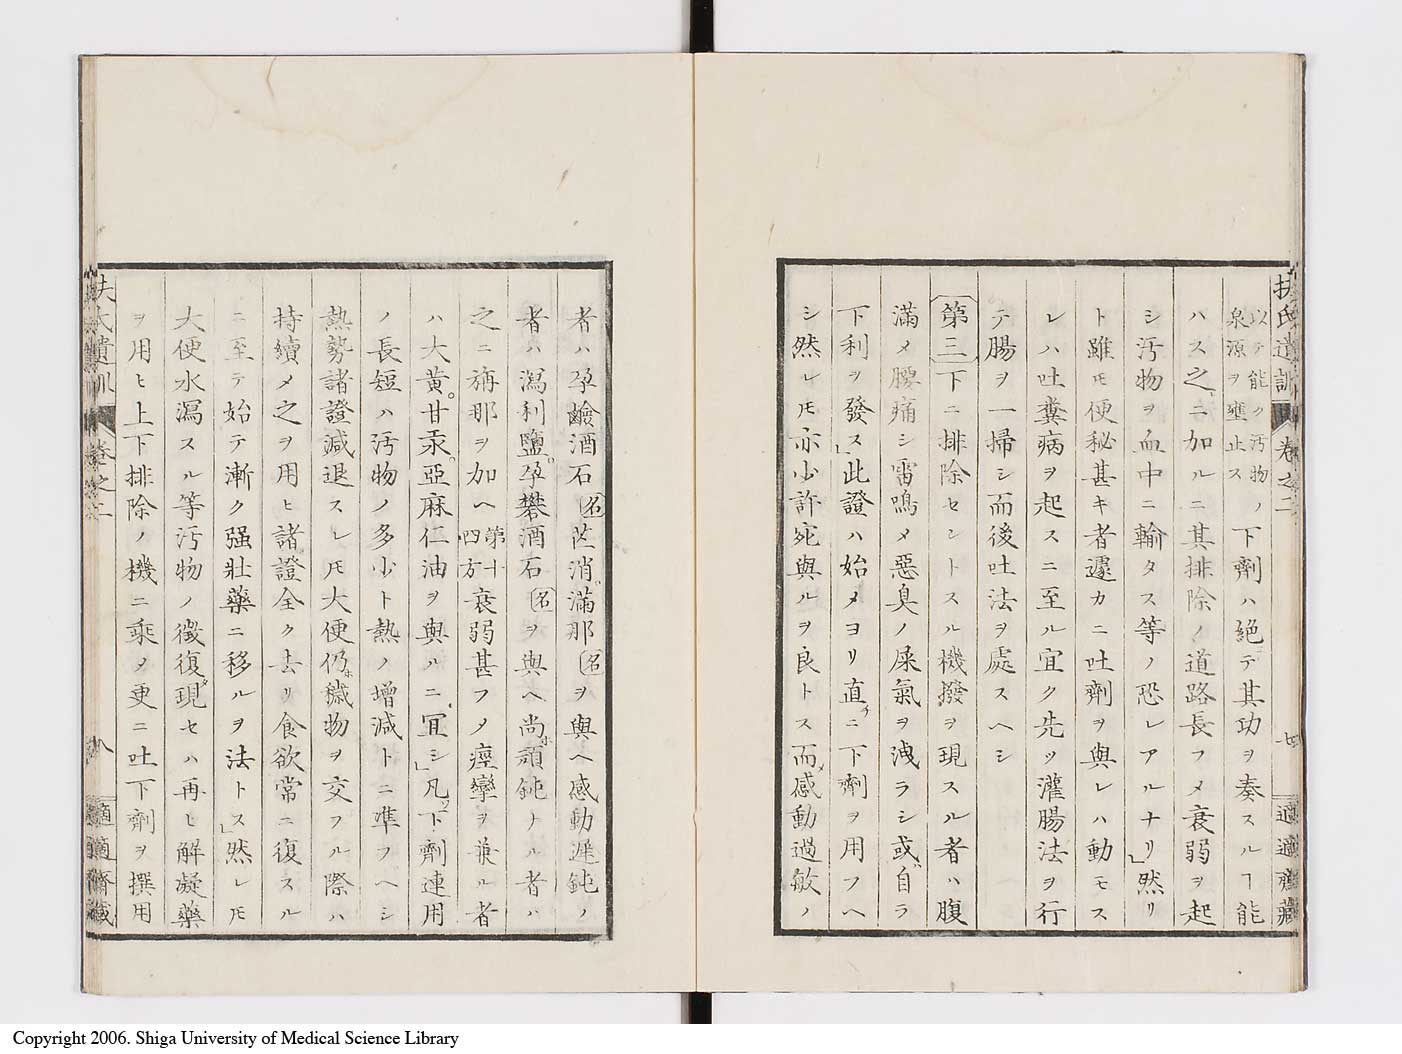 扶氏遺訓 卷之二 七 適適齋藏
以テ能ク汚物ノ泉源ヲ壅止ス下劑ハ絶テ其功ヲ奏スルヿ能
ハス之ニ加ルニ其排除ノ道路長フメ衰弱ヲ起
シ汚物ヲ血中ニ輸タス等ノ恐レアルナリ」然リ
ト雖モ便秘甚キ者遽カニ吐劑ヲ與レハ動モス
レハ吐糞病ヲ起スニ至ル宜ク先ツ灌腸法ヲ行
テ腸ヲ一掃シ而後吐法ヲ處スヘシ
第三下ニ排除セントスル機撥ヲ現スル者ハ腹
滿メ腰痛シ雷鳴メ惡臭ノ屎氣ヲ洩ラシ或自ラ
下利ヲ發ス」此證ハ始メヨリ直チニ下劑ヲ用フヘ
シ然レモ亦少許宛與ルヲ良トス而メ感動過敏ノ
者ハ孕鹼酒石名芒消滿那名ヲ與ヘ感動遲鈍ノ
者ハ瀉利鹽孕礬酒石名ヲ與ヘ尚ホ頑鈍ナル者ハ
之ニ旃那ヲ加ヘ第十四方衰弱甚フメ痙攣ヲ兼ル者
ハ大黄甘汞亞麻仁油ヲ與ルニ宜シ」凡ソ下劑連用
ノ長短ハ汚物ノ多少ト熱ノ増減トニ準フヘシ
熱勢諸證減退スレモ大便仍ホ穢物ヲ交フル際ハ
持續メ之ヲ用ヒ諸證全ク去リ食欲常ニ復スル
ニ至テ始テ漸ク强壯藥ニ移ルヲ法トス」然レモ
大便水瀉スル等汚物ノ徴復タ現セハ再ヒ解凝藥
ヲ用ヒ上下排除ノ機ニ乘メ更ニ吐下劑ヲ撰用
扶氏遺訓 卷之二 八 適適齋藏
Copyright 2006. Shiga University of Medical Science Library